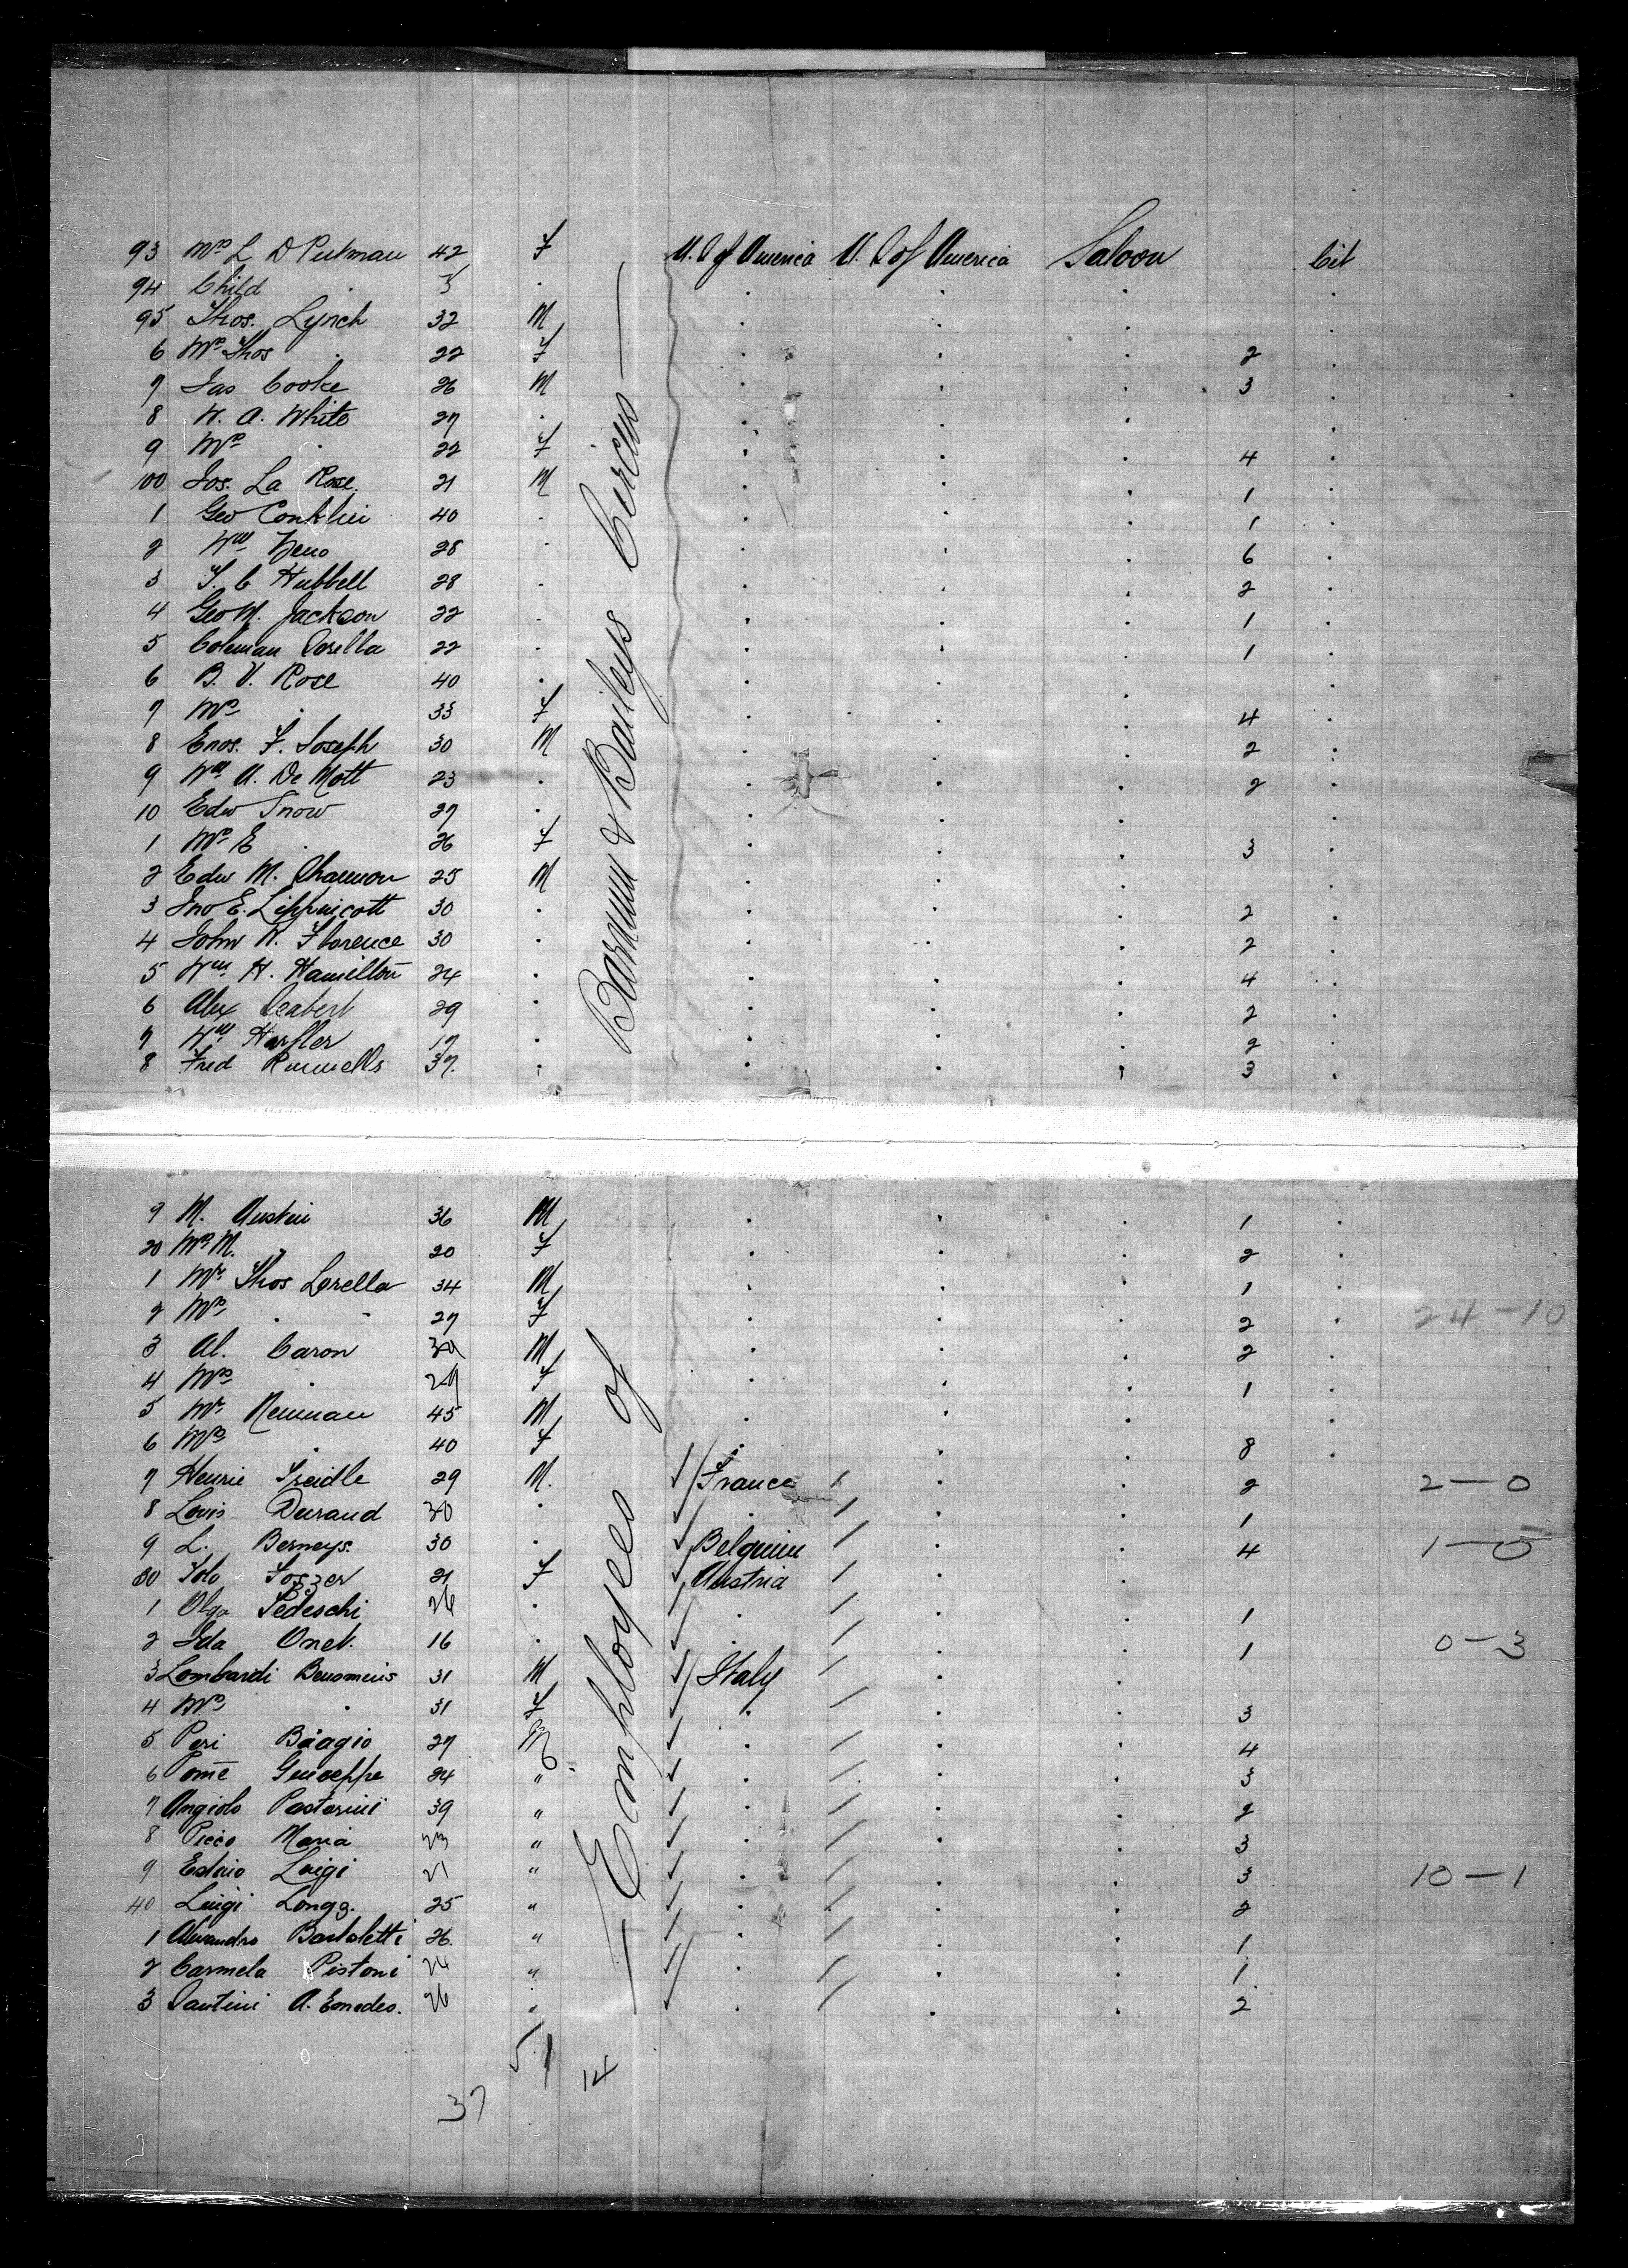 93 Mrs L D Putman 42 F U. S of America U. S of America Saloon Cit
94 Child .
95 Thos. Lynch 32 M . . . .
6 Mrs Thos . 22 F . . . 2 .
7 Jas Cooke 26 M . . . 3 .
8 W. A. White 27 . . . . .
9 Mrs . 22 F . . . 4 .
100 Jos. La Rose. 21 M . . . 1 .
1 Geo Conklin 40 . . . . 1 .
2 Wm Zeno 28 . . . . 6 .
3 T. C Hubbell 28 . . . . 2 .
4 Geo M. Jackson 22 . . . . 1 .
5 Coleman 22 . . . . 1 .
6 B. V. Rose 40 . . . . .
7 Mrs . 33 F . . . 4 .
8 Enos. F. Joseph 30 M . . . 2 .
9 Wm A. De Mott 23 . . . . 2 .
10 Edw Snow 27 . . . . .
1 Mrs E . 26 F . . . 3 .
2 Edw M. Shannon 25 M . . . .
3 Jno E. Lippincott 30 . . . . 2 .
4 John W. Florence 30 . . . . 2 .
5 Wm H. Hamilton 24 . . . . 4 .
6 Alex Seabert 29 . . . . 2 .
7 Wm 17 . . . . 2 .
8 Fred Runnells 37. . . . . 3 .
9 M. Austin 36 M . . . 1 .
20 Mrs M. " 20 F . . . 2 .
1 Mr. Thos Lorella 34 M . . . 1 .
2 Mrs . . 27 F . . . 2 . 24-10
3 Al. Caron M . . . 2 .
4 Mrs . 29 F . . . 1 .
5 Mr Neuman 45 M . . . .
6 Mrs . 40 F . . . 8 .
7 Henrie 29 M. France . . 2 2-0
8 Louis Durand 30 . . . . 1
9 L. Berneys. 30 . Belguim . . 4 1-0
30 21 F Austria . .
1 Olga Tedeschi 26 . . . . 1
2 Ida Onet. 16 . . . . 1 0-3
3 Lombardi 31 M Italy . .
4 Mrs . 31 F . . . 3
5 Peri Biagio 27 M . . . 4
6 Pome Guiseppe 24 " . . . 3
7 Angiolo Pastorini 39 " . . . 2
8 Picco Maria 23 " . . . 3
9 Luigi 21 " . . . 3 10-1
40 Luigi Longo. 25 " . . . 2
1 Alexandro Bartoletti 26. " . . . 1
2 Carmela Pistoni 24 " . . . 1.
3 Santini A. Emedeo. 26 " . . . 2
Employees of Barnum & Baileys Circus
51
14
37